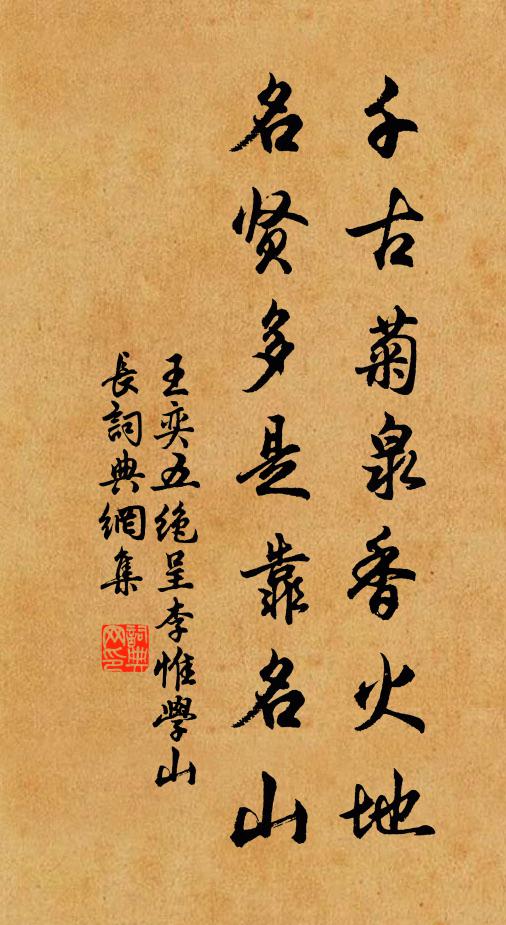 千古菊泉香火地
名贤多是靠名山
王奕五绝呈李惟學山
長詞典網集
詞典网印